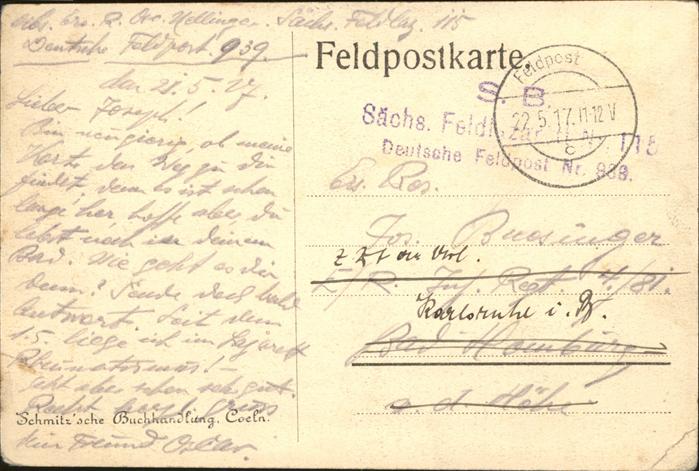 Abs. Ers. R. Osc. Mellinger. Sächs. Feldlaz. 115
Deutsche Feldpost. 939.
den 21.5.17.
Lieber Joseph!
Bin neugierig, ob meine
Karte den Weg zu dir
findet, denn es ist schon
lange her, hoffe aber du
lebst noch in deinem
Bad. Wie geht es dir
denn? Sende doch bald
Antwort. Seit dem
1.5. liege ich im Lazarett
Rheumatismus!
geht aber schon sehr gut.
Recht herzl. Gruss
dein Freund Oscar.
Schmitz'sche Buchhandlung, Coeln.
Feldpostkarte.
S. B.
Sächs. Feldlazarett Nr. 115
Deutsche Feldpost Nr. 939.
Feldpost
22.5.17.11-12 V
c
Ers. Res.
Jos. Buesinger
z Zt
E/R. Inf. Regt. 4/81.
Karlsruhe i. B.
Bad Homburg
a. d. Höhe